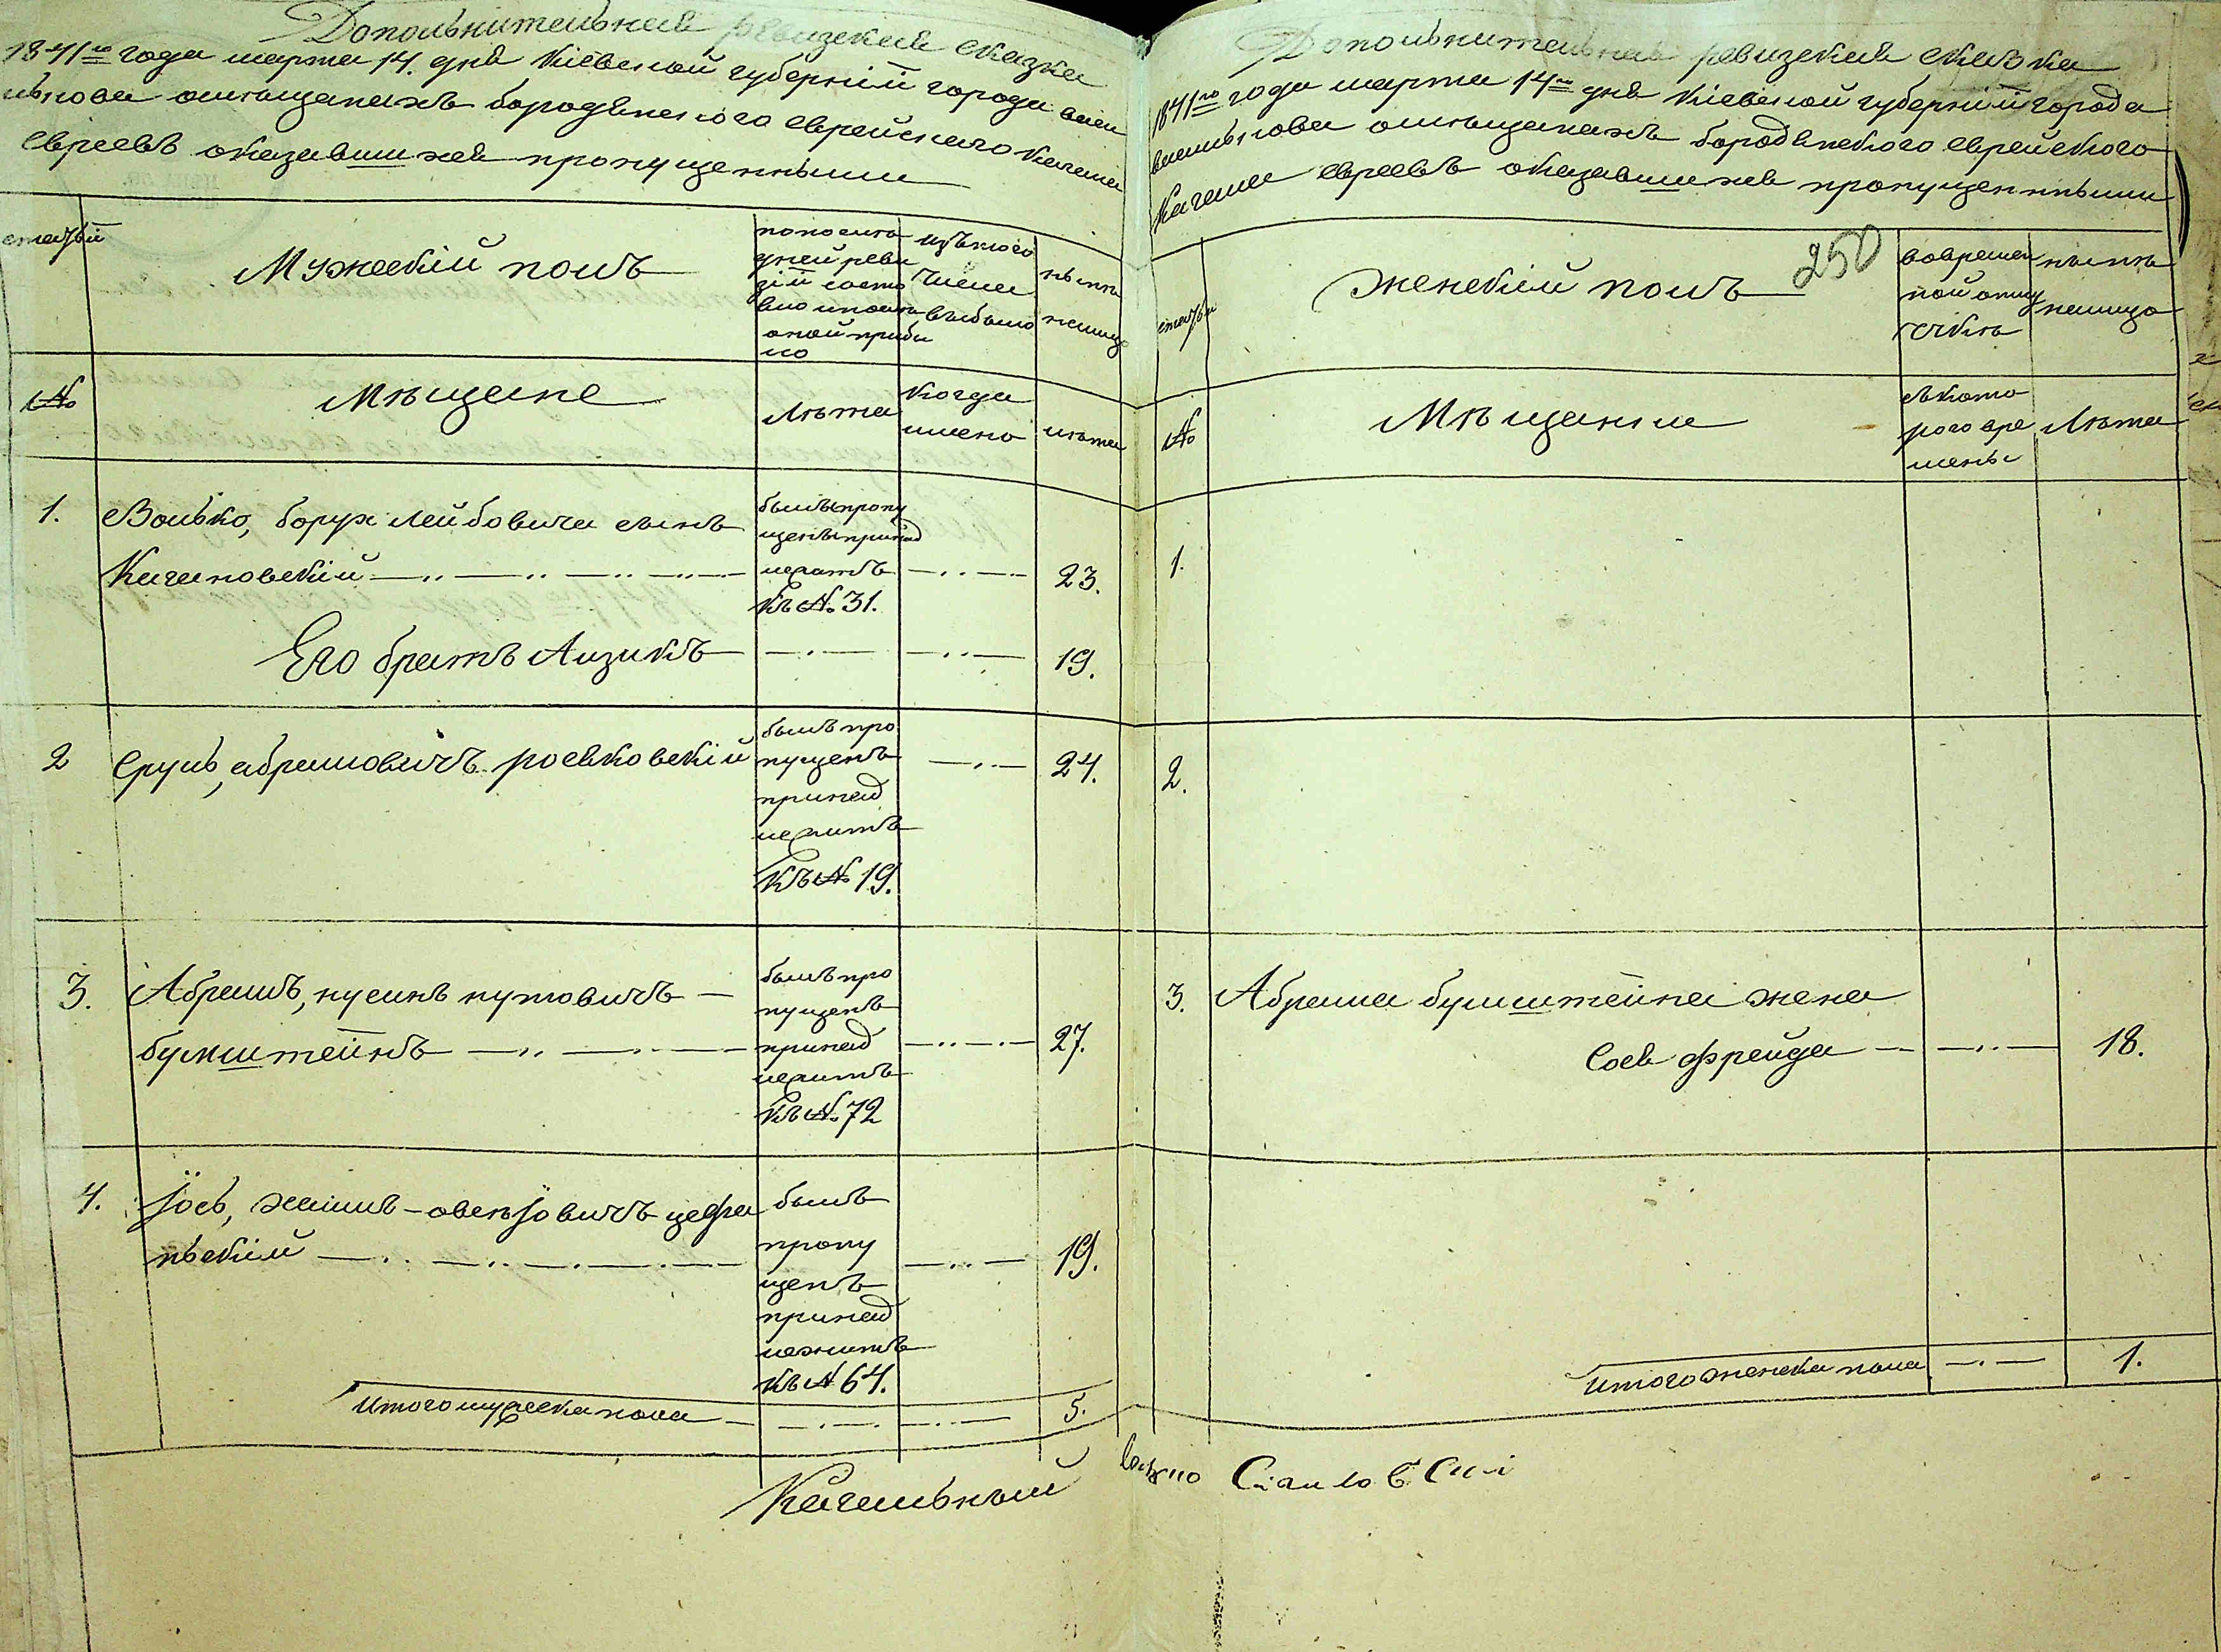 Дополнительная ревизская сказка
1841го года марта 14. дня Кіевской губерніи города васи
лькова омѣщанахъ бородянского еврейского кагала
евреевъ оказавшихся пропущенными
статьи
Мужескій полъ
попослѣ
дней реви
зіи состо
яло и послѣ
оной прибы
ло
изъ того
числа
выбыло
нынѣ
налицо
№
Мѣщане
Лѣта
когда
имено
лѣта
1. Волько, борух лейбовича сынъ
Кагановскій
былъ пропу
щенъ принад
лежитъ
къ № 31.
23.
Его братъ Аизикъ 19.
2 Сруль, абрамовичъ росяковскій
былъ про
пущенъ
принад
лежитъ
къ № 19.
24.
3. Абрамъ, нусинъ нутовичъ
бумштейнъ
былъ про
пущенъ
принад
лежитъ
къ № 72
27.
4. Іось, хаимъ-овенъ
ньскій
былъ
пропу
щенъ
принад
лежитъ
къ № 64.
19.
Итого мужеска пола 5.
Кагальный
Дополнительная ревизская сказка
1841го года марта 14го дня Кіевской губерніи города
василькова омѣщанахъ бородянского еврейского
Кагала евреевъ оказавшихся пропущенными
250
статьи
женскій полъ
вовремен
ной отлу
чкѣ
нынѣ
налицо
№
Мѣщанки
съ кото
рого вре
мены
Лѣта
1.
2.
3. Абрама бумштейна жена
Сося фрейда 18.
Итого женска пола 1.